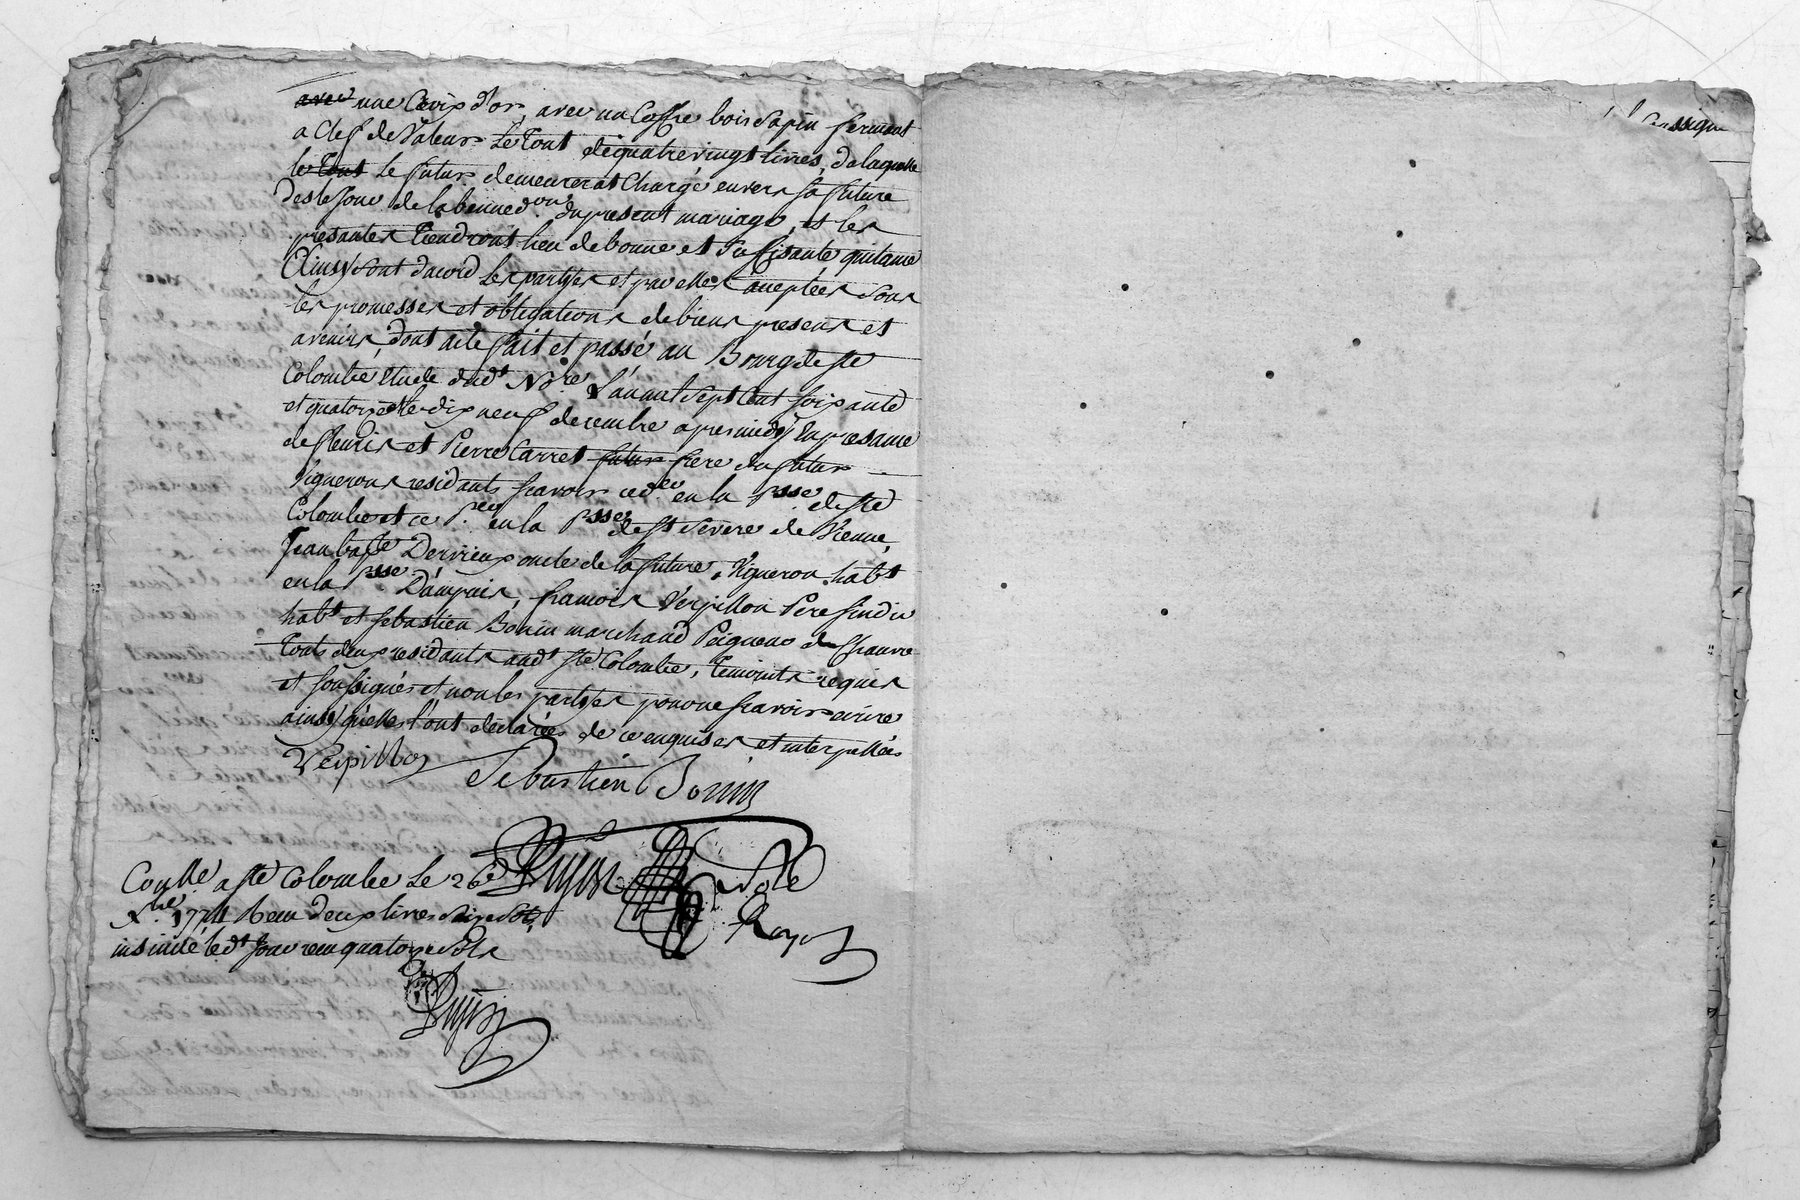 avec une Croix d'or, avec un Coffre bois Sapin fermant
a Clef de Valeur Le Tout de quatrevingt livres, de laquelle
le Tout Le futur demeurerat Chargé envers sa future
Des le Jour de la benned.on Du present mariage, et les
presantes Tiendront lieu de bonne et Suffisante quitance
Ainsy Sont dacord les partyes et par elles aceptées Sous
les promesses et obligations de biens presens et
avenirs, dont acte fait et passé au Bourg de Ste
Colombe Etude dud.t No.re L'an mil Sept Cent soixante
et quatorze le dix neuf decembre apres midy En presance
de fleuris et Pierre Carret futur frere du futur
Vignerons residants scavoir ced.er en la P.sse de Ste
Colombe et ce P.er en la P.sse de St Severe de Vienne,
Jean bap.te Derrieux oncle de la future, Vigneron hab.t
en la P.sse D'ampuis, francois Verpillon Pere sindic
hab.t et Sebastien Bonin marchand Peigneur de Chanvre
Touts deux residants aud.t Ste Colombe, Temoints requis
et soussignés et non les partyes pour ne scavoir ecrire
ainsy qu'elles l'ont declarées de ce enquises et interpellées
Verpillon Sebastien Bonin
Con.lle a Ste Colombe Le 26e
X.bre 1774 Receu deux livres Seize Sols
insinué led.t Jour receu quatorze Sols